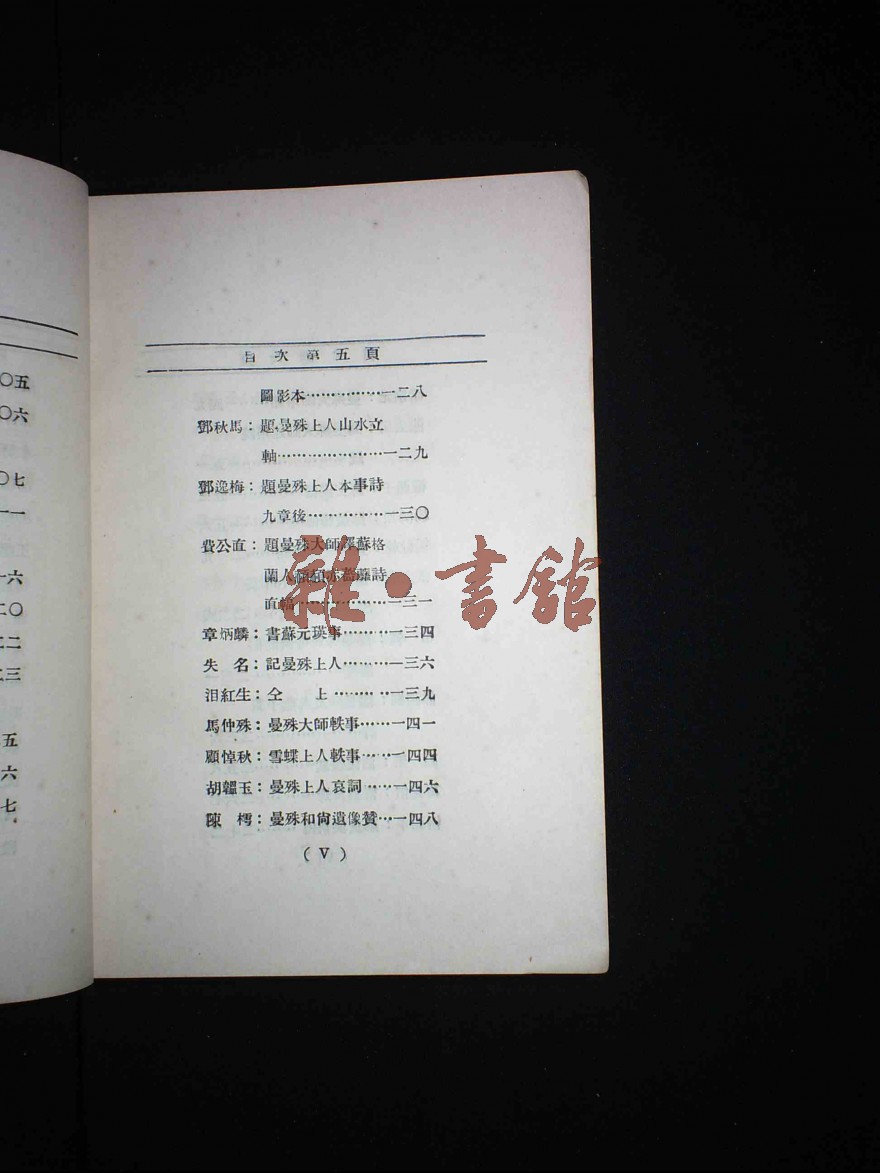 目次第五頁
圖影本……………一二八
鄧秋馬：題曼殊上人山水立
軸…………………一二九
鄧逸梅：題曼殊上人本事詩
九章後……………一三〇
費公直：題曼殊大師譯蘇格
蘭人頴頴赤薔薇詩
直幅………………一三一
章炳麟：書蘇元瑛事………一三四
失　名：記曼殊上人………一三六
泪紅生：仝　上………一三九
馬仲殊：曼殊大師軼事……一四一
顧悼秋：雪蝶上人軼事……一四四
胡韞玉：曼殊上人哀詞……一四六
陳　樗：曼殊和尙遺像贊…一四八
（V）
〇五
〇六
〇七
一一
一六
二〇
二二
二三
五
六
七
雜·書館